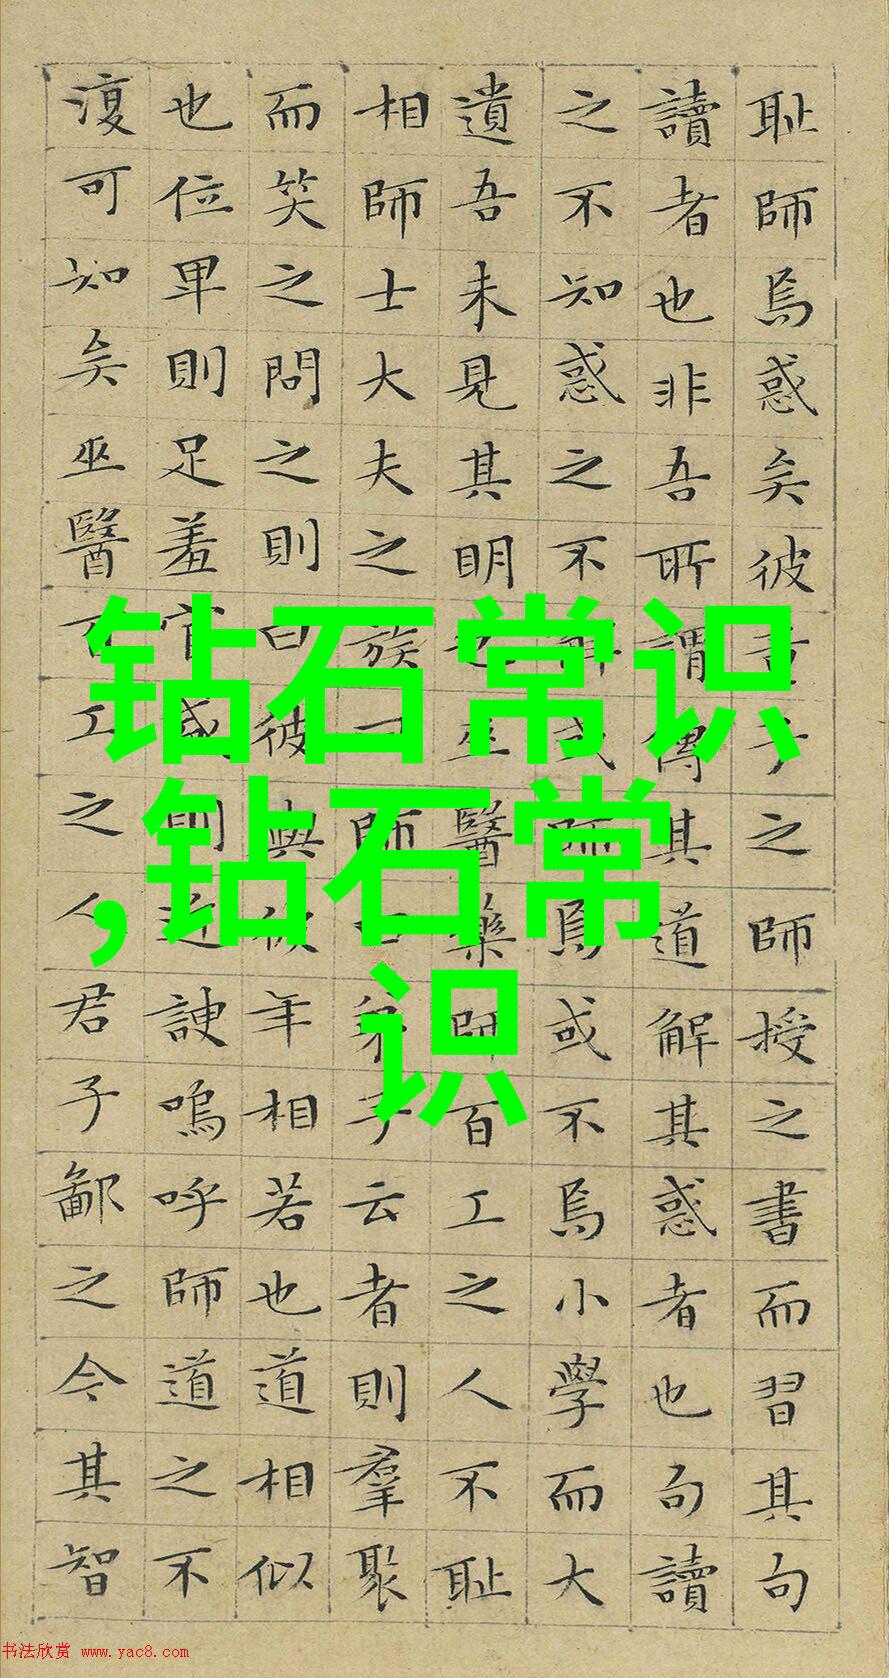 钻石常识
,钻石常
识
耻師焉惑矣彼童子之師授之書而習其句
讀者也非吾所謂傳其道解其惑者也句讀
之不知惑之不解或師焉或不焉小學而大
遺吾未見其明也巫醫藥師百工之人不耻
相師士大夫之族曰師曰弟子云者則羣聚
而笑之問之則曰彼與彼年相若也道相似
也位卑則足羞官盛則近諛嗚呼師道之不
復可知矣巫醫百工之人君子鄙之今其智
书法欣赏 www.yac8.com